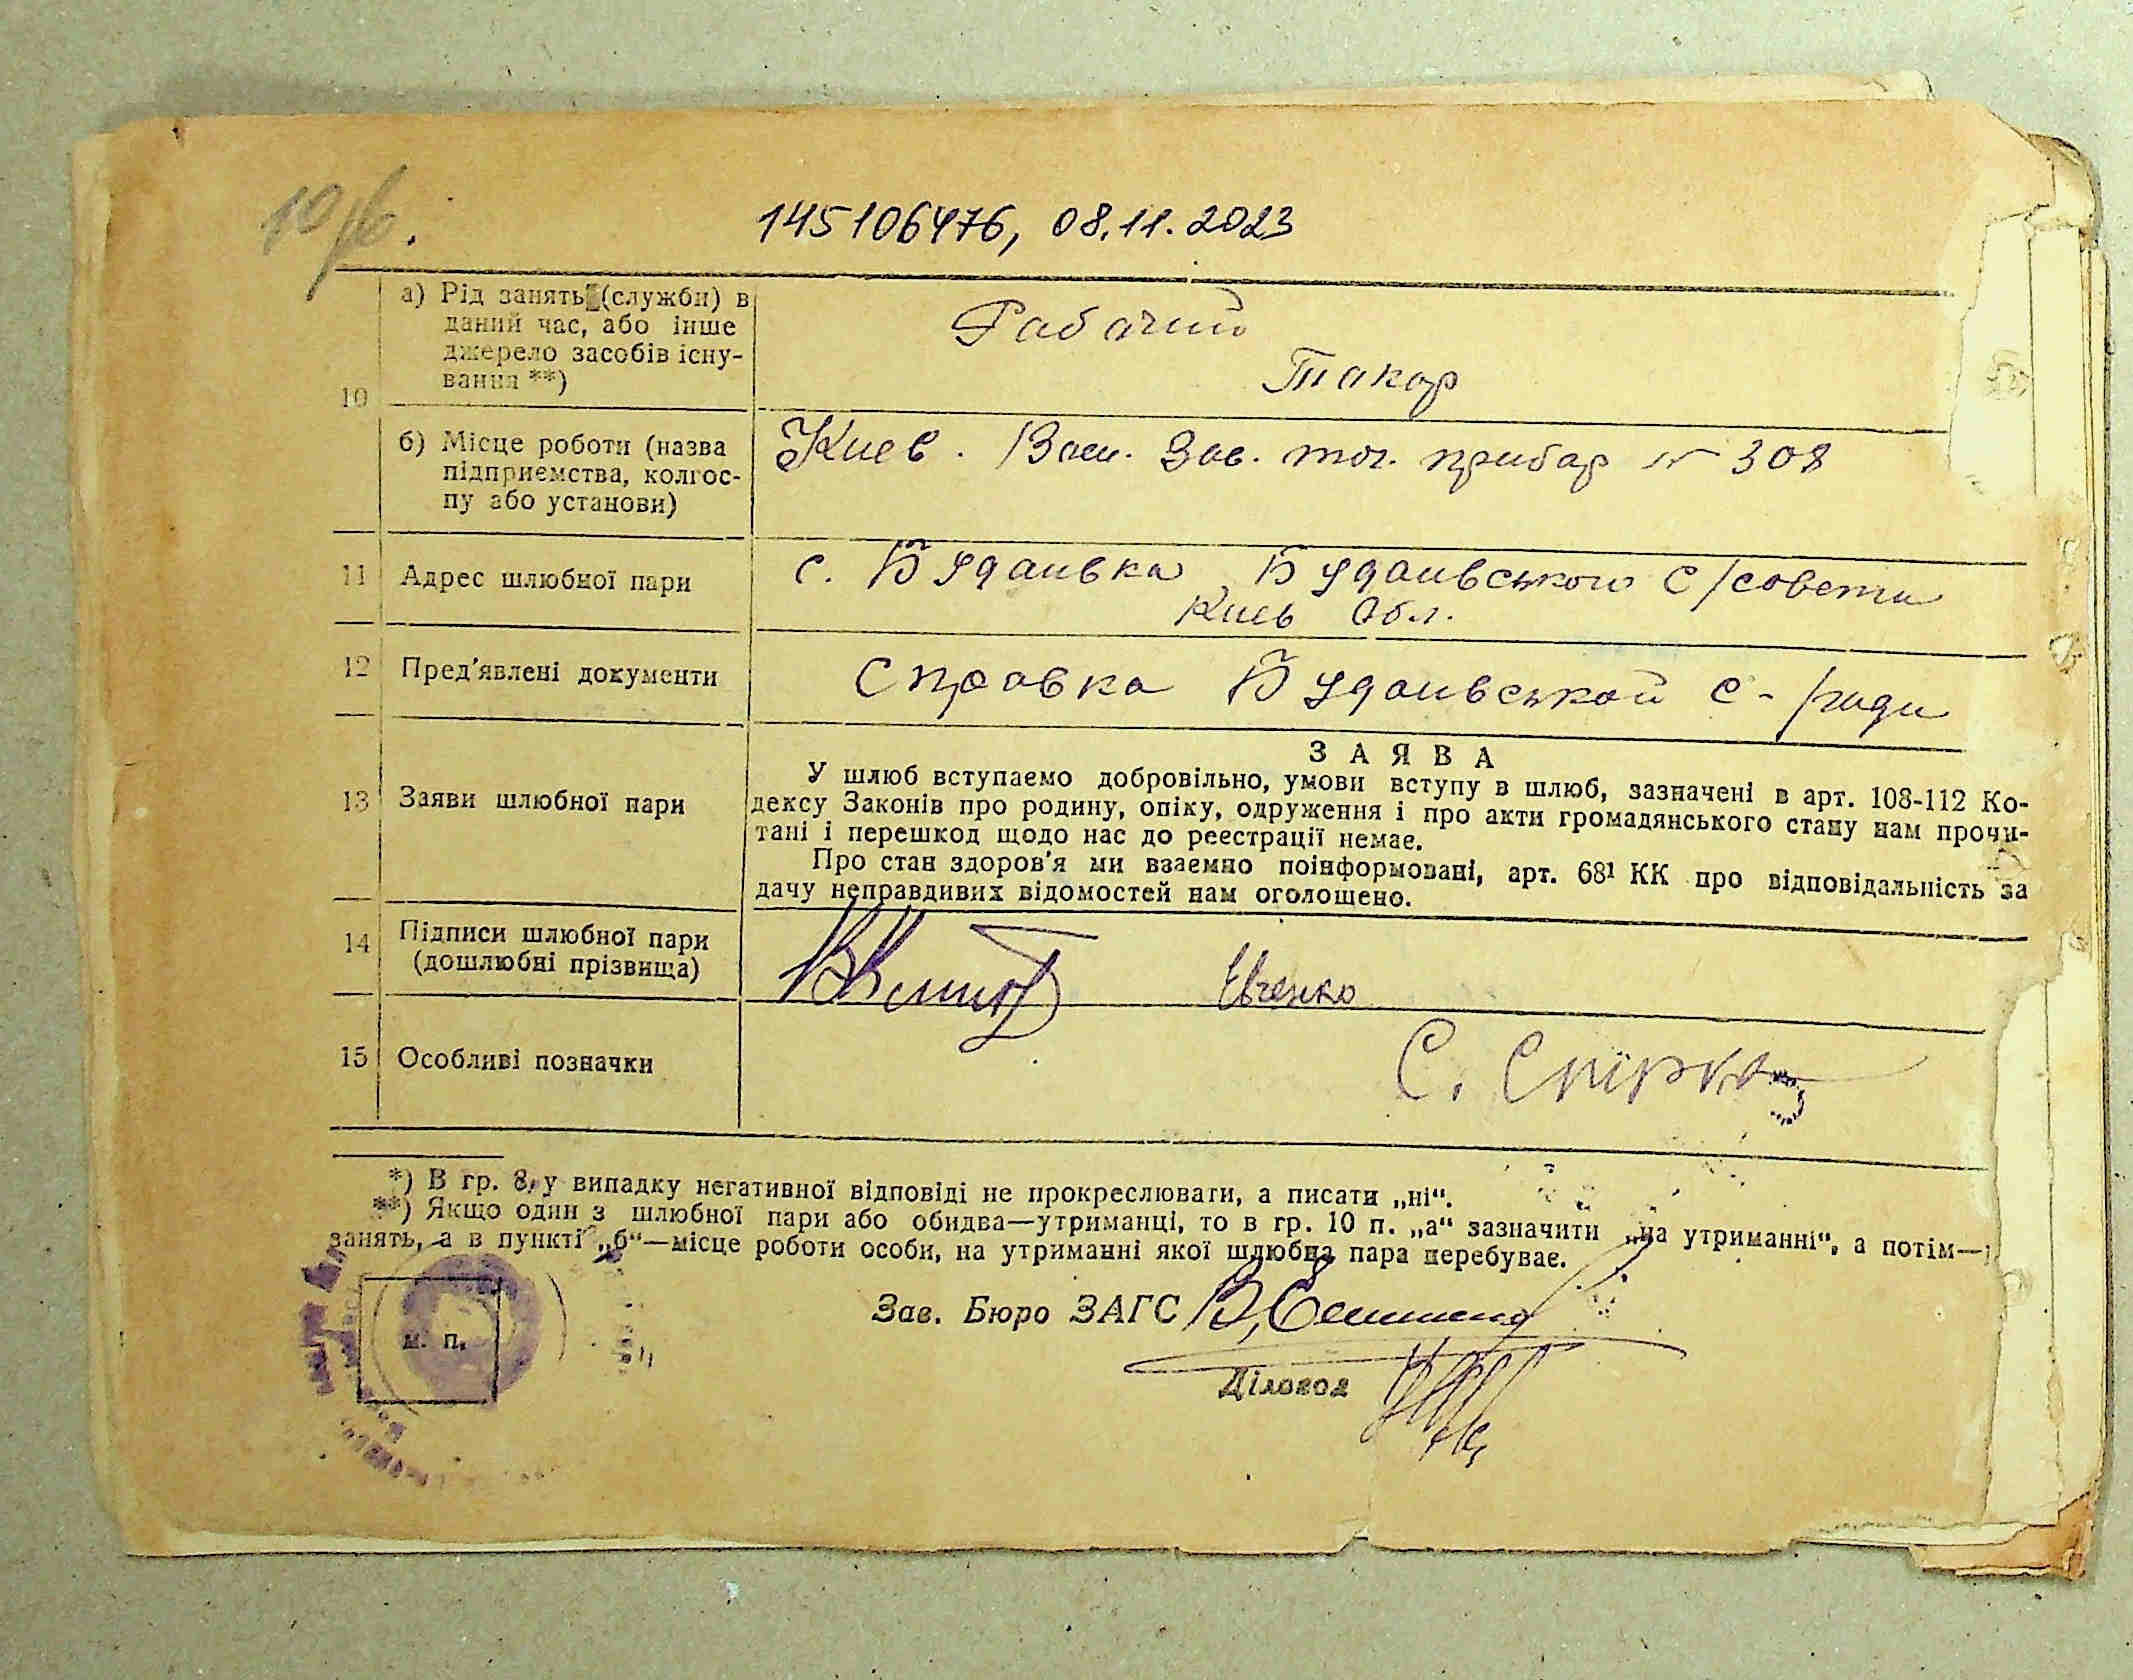 145106476, 08.11.2023
10
а) Рід занять (служби) в
даний час, або інше
джерело засобів існу-
вання **)
Рабочий
Токар
б) Місце роботи (назва
підприємства, колгос-
пу або установи)
Киев. Воен. Зав. точ. прибор № 308
11
Адрес шлюбної пари
с. Будаивка Будаивського С/совета
Киев Обл.
12
Пред'явлені документи
Справка Будаивськой с-/ради
13
Заяви шлюбної пари
ЗАЯВА
У шлюб вступаємо добровільно, умови вступу в шлюб, зазначені в арт. 108-112 Ко-
дексу Законів про родину, опіку, одруження і про акти громадянського стану нам прочи-
тані і перешкод щодо нас до реєстрації немає.
Про стан здоров'я ми взаємно поінформовані, арт. 68¹ КК про відповідальність за
дачу неправдивих відомостей нам оголошено.
14
Підписи шлюбної пари
(дошлюбні прізвища)
Евченко
15
Особливі позначки
С. Спірко
*) В гр. 8, у випадку негативної відповіді не прокреслювати, а писати „ні“.
**) Якщо один з шлюбної пари або обидва—утриманці, то в гр. 10 п. „а“ зазначити „на утриманні“, а потім—
занять, а в пункті „б“—місце роботи особи, на утриманні якої шлюбна пара перебуває.
м. п.
Зав. Бюро ЗАГС
Діловод